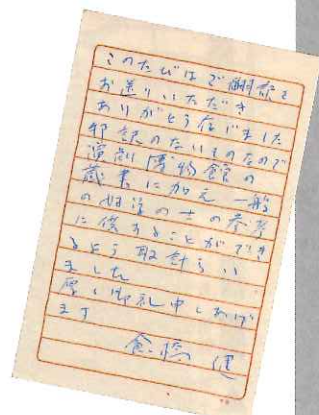 このたびはご翻訳を
お送りいただき
ありがとう存じました
邦訳のないものなので
演劇博物館の
蔵書に加え一般
の好学の士の参考
に供することができ
るよう取計らい
ました
厚く御礼申しあげ
ます
倉橋 健